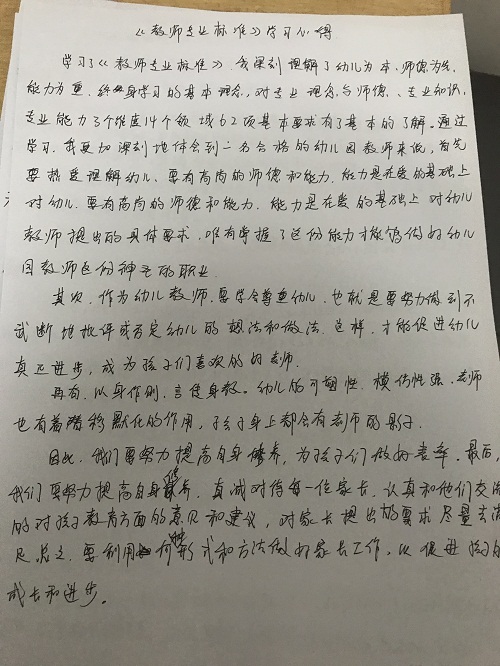 《教师专业标准》学习心得
学习了《教师专业标准》,我深刻理解了幼儿为本、师德为先、
能力为重、终身学习的基本理念,对专业理念与师德、专业知识、
专业能力3个维度14个领域62项基本要求有了基本的了解。通过
学习,我更加深刻地体会到一名合格的幼儿园教师来说,首先
要热爱理解幼儿、要有高尚的师德和能力,能力是在爱的基础上
对幼儿,要有高尚的师德和能力,能力是在爱的基础上对幼儿
教师提出的具体要求,唯有掌握了这份能力才能够做好幼儿
园教师这份神圣的职业。
其次,作为幼儿教师,要学会尊重幼儿,也就是要努力做到不
武断地批评或否定幼儿的想法和做法,这样,才能促进幼儿
真正进步,成为孩子们喜欢的好老师。
再有,以身作则,言传身教。幼儿的可塑性、模仿性强,老师
也有着潜移默化的作用,孩子身上都会有老师的影子。
因此,我们要努力提高自身修养,为孩子们做好表率。最后,
我们要努力提高自身修养,真诚对待每一位家长,认真和他们交流
的对孩子教育方面的意见和建议,对家长提出的要求尽量去满
足总之,要利用任何形式和方法做好家长工作,以促进孩子的
成长和进步。